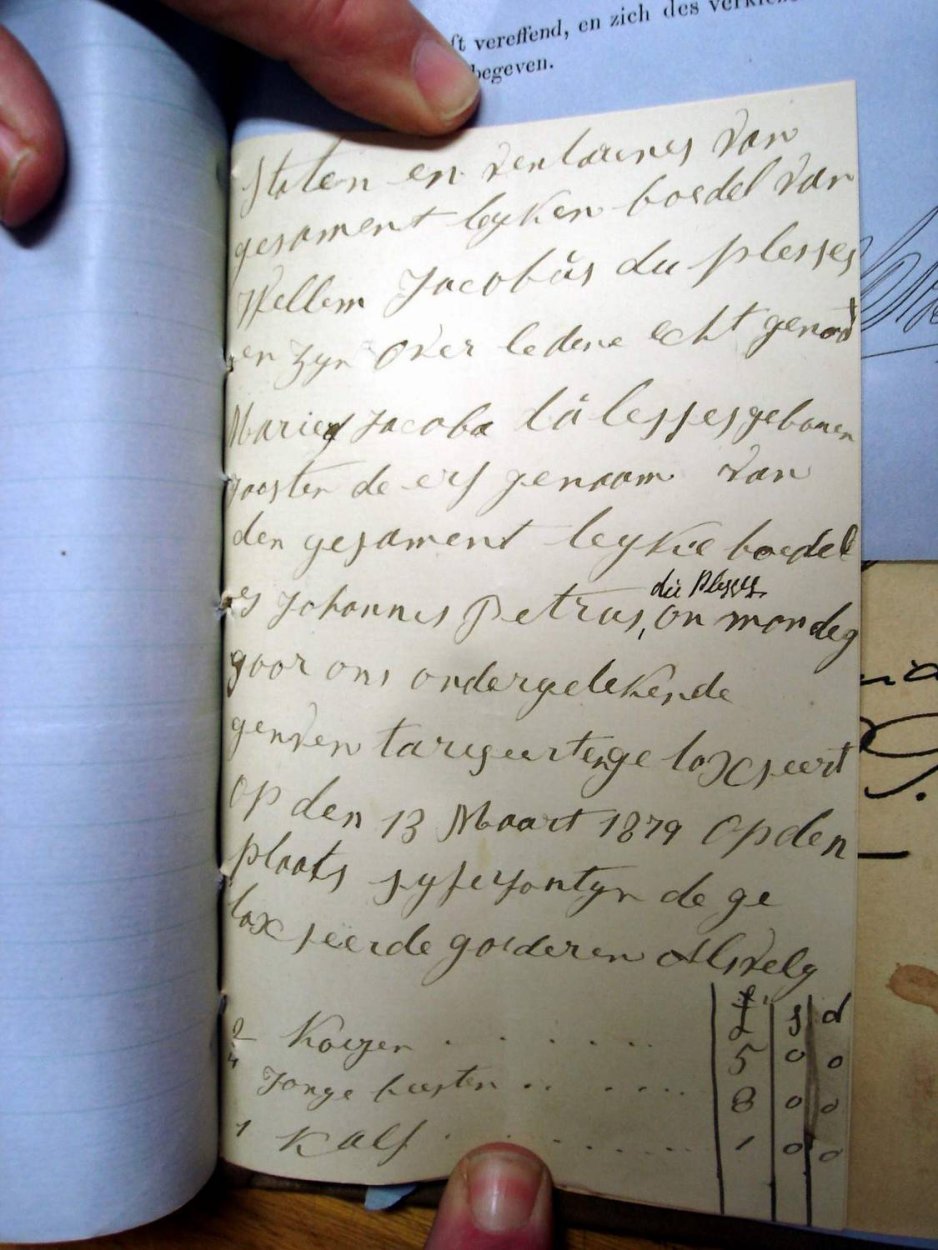 ft vereffend, en zich des
begeven.
Staten en ventarines van
gesament leyken boedel van
Wellem Jacobüs du plesses
en zyn over ledene echt genoot
Maria Jacoba dü lesses gebouen
de erf genaam van
den gesament leykee boedel
es Johannes Petrus,
dü Plesses
on mondeg
goor ons ondergetekende
ge taxseert
op den 13 Maart 1879 op den
plaats syferfontyn de ge
tax seerde goederen Alsvelg
£ s d
2 Koeyen . . . . . . 5 0 0
4 Jonge beesten . . . . . . 8 0 0
1 Kalf . . . . . . . 1 0 0